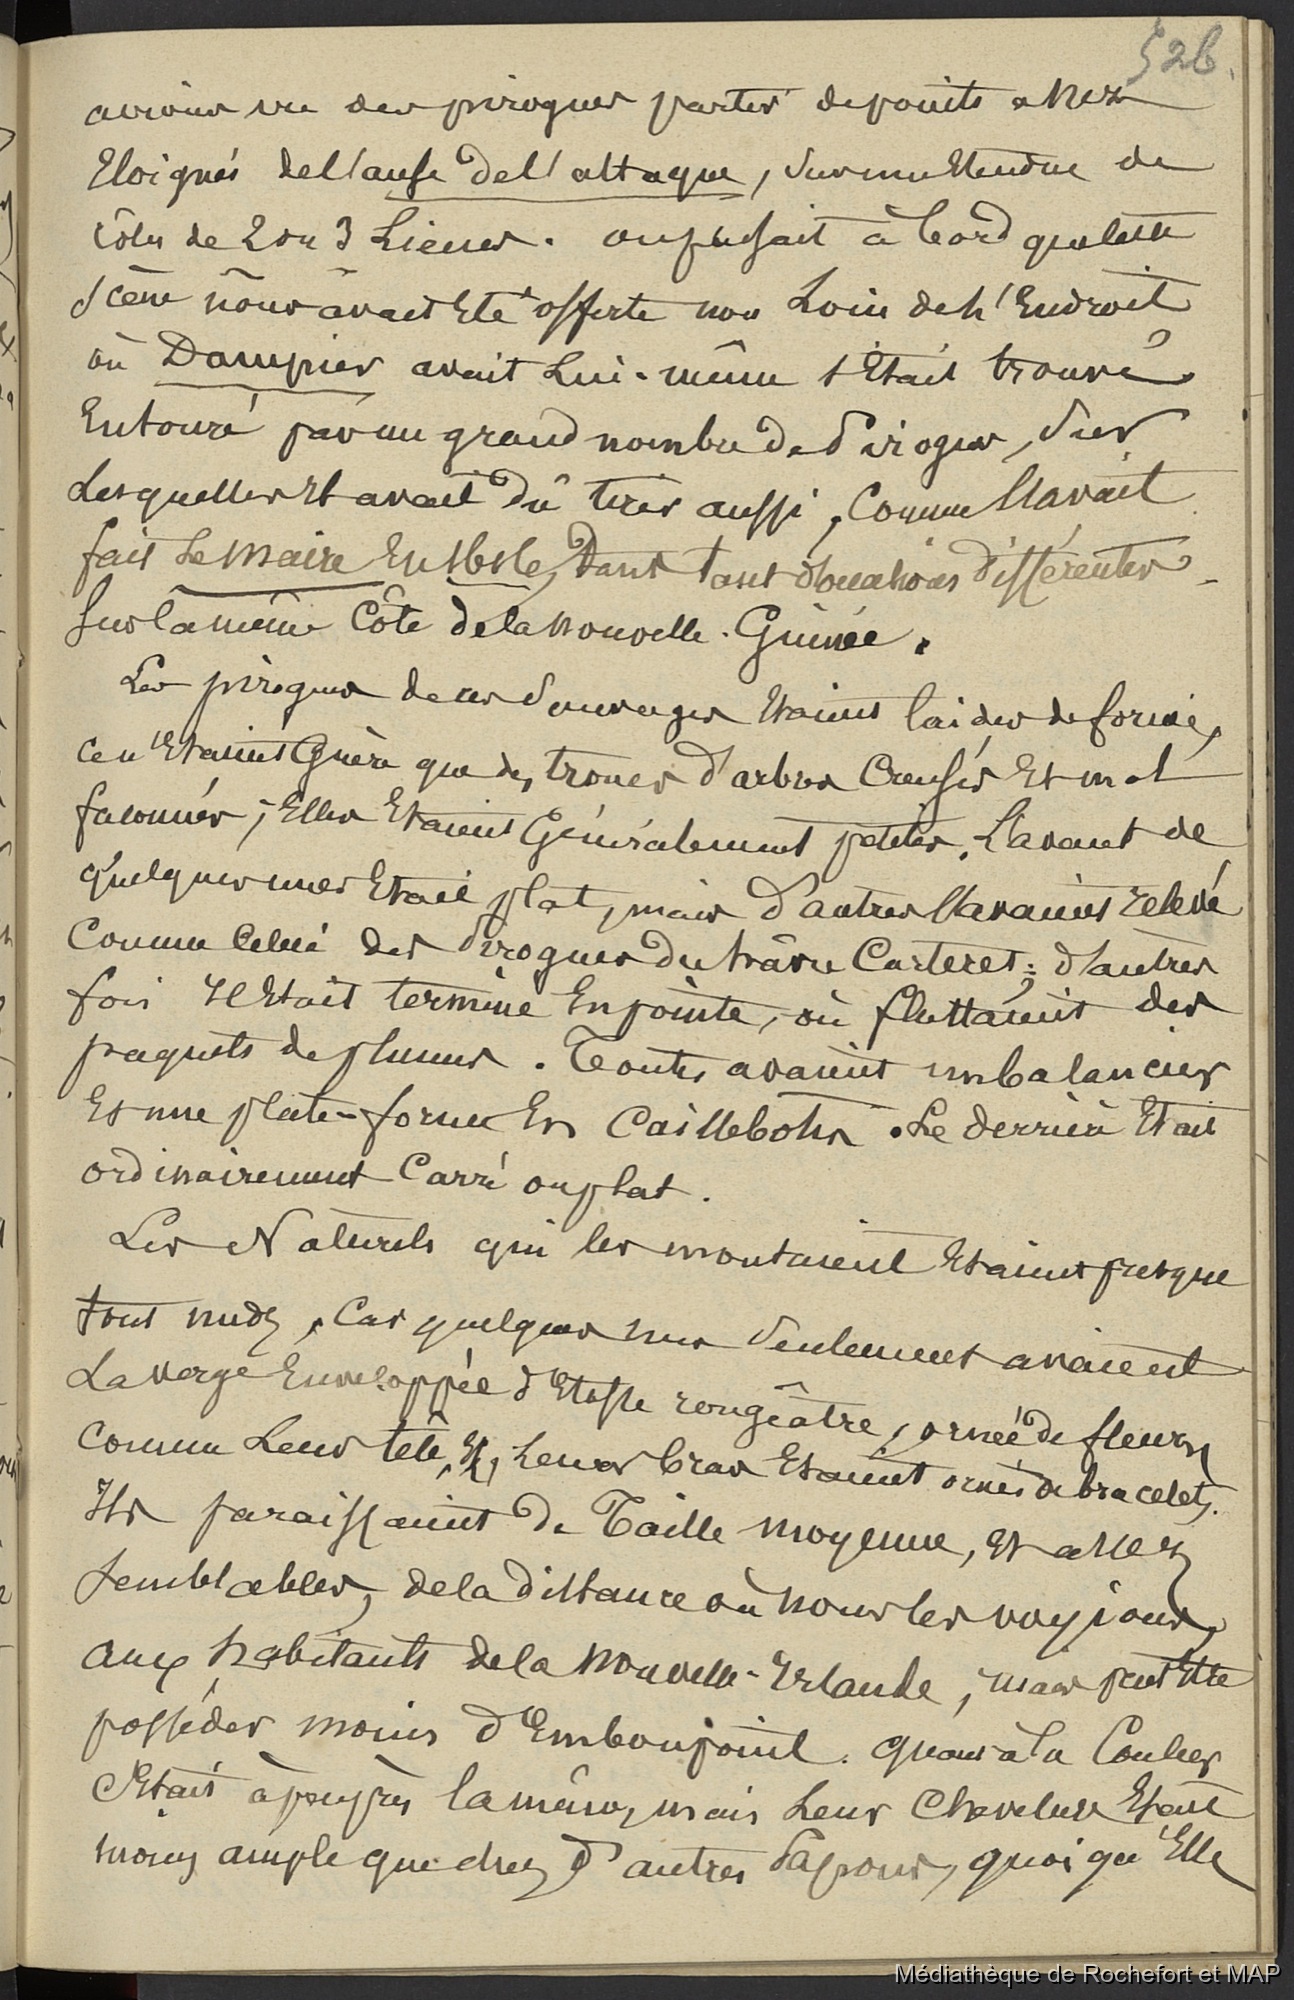 526.
avions vu des pirogues partir de points assez
Eloignés de l'anse de l'attaque, sur une Etendue de
côtes de 2 ou 3 Lieues. on pensait à bord que cette
scène nous avait Eté offerte non Loin de L'Endroit
où Dampier avait Lui-même s'Etait trouvé
Entouré par un grand nombre de Pirogues, sur
Lesquelles Il avait dû tirer aussi, Comme l'avait
fait Le Maire En 1616, dans des différentes
sur la même Côte de la Nouvelle-Guinée.
Les pirogues de ces Sauvages Etaient laides de forme,
ce n'Etaient Guère que des troncs d'arbres Creusés Et mal
façonnés; Elles Etaient Généralement petites. L'avant de
quelques unes Etait plat, mais d'autres l'avaient relevé
Comme Celui des Pirogues du hâvre Carteret; d'autres
fois Il Etait terminé En pointe, où flottaient des
paquets de plumes. Toutes avaient un balancier
Et une plate-forme En Caillebotis. Le derrière Etait
ordinairement Carré ou plat.
Les Naturels qui les montaient Etaient presque
tout nuds, Car quelques uns Seulement avaient
La verge Enveloppée d'Etoffe rougeâtre, ornée de fleurs
comme Leur tête, Et Leurs bras Etaient ornés de bracelets.
Ils paraissaient de Taille moyenne, Et assez
semblables, de la distance où nous les voyions,
aux habitants de la Nouvelle-Irlande, mais peut Etre
posséder moins d'Embonpoint. quant à la Couleur
C'Etait à peu près la même, mais Leur Chevelure Etait
moins ample que chez d'autres Papous, quoi qu'Elle
Médiathèque de Rochefort et MAP